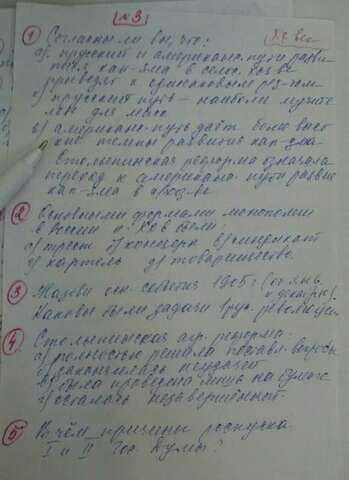 №3
XX век
① Согласны ли вы, что:
а) прусский и американс. пути разви
тия кап-зма в сельс. хоз-ве
приводят к одинаковым рез-там
б) прусский путь – наиболее мучите
лен для масс
в) американс. путь даёт более высо
кий темпы развития кап-зма
Столыпинская реформа означала
переход к американс. пути развит
кап-зма в с/хоз-ве
② Основными формами монополии
в России н. XX в были:
а) трест б) концерн в) синдикат
г) картель д) товарищество
③ Назови осн. события 1905 г. (от янв.
к декабрю).
Каковы были задачи I рус. революции
④ Столыпинская агр. реформа.
а) полностью решила поставл. вопросы
б) закончилась неудачей
в) была проведена лишь на бумаге
г) осталась незавершённой.
⑤ В чём причины роспуска
I и II Гос. Думы?